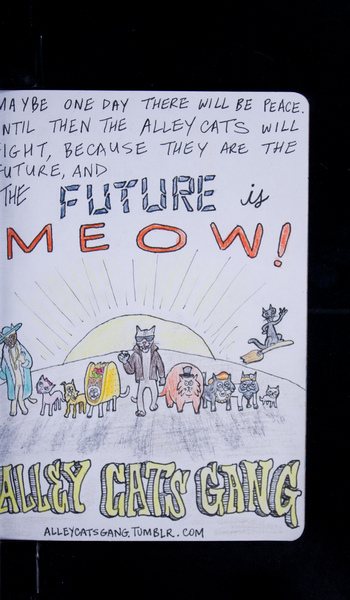 MAYBE ONE DAY THERE WILL BE PEACE.
UNTIL THEN THE ALLEY CATS WILL
FIGHT, BECAUSE THEY ARE THE
FUTURE, AND
THE FUTURE is
MEOW!
ALLEY CATS GANG
ALLEYCATSGANG.TUMBLR.COM